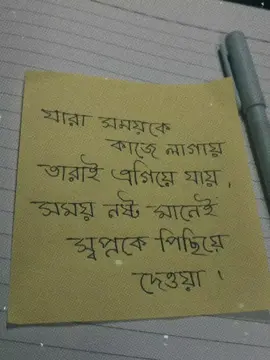 যারা সময়কে
কাজে লাগায়
তারাই এগিয়ে যায়,
সময় নষ্ট মানেই
স্বপ্নকে পিছিয়ে
দেওয়া।